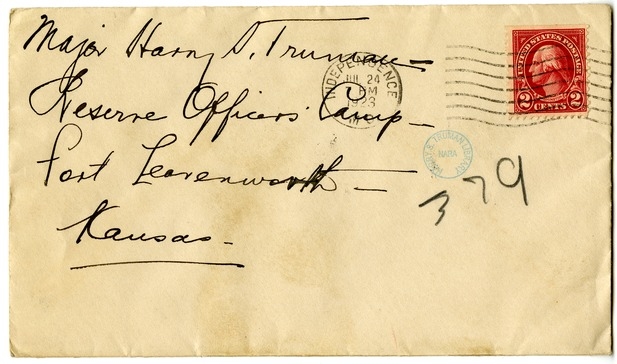 Major Harry S. Truman—
Reserve Officers' Camp—
Fort Leavenworth—
Kansas—
INDEPENDENCE
JUL 24
PM
1923
UNITED STATES POSTAGE
2 CENTS 2
HARRY S. TRUMAN LIBRARY
NARA
379